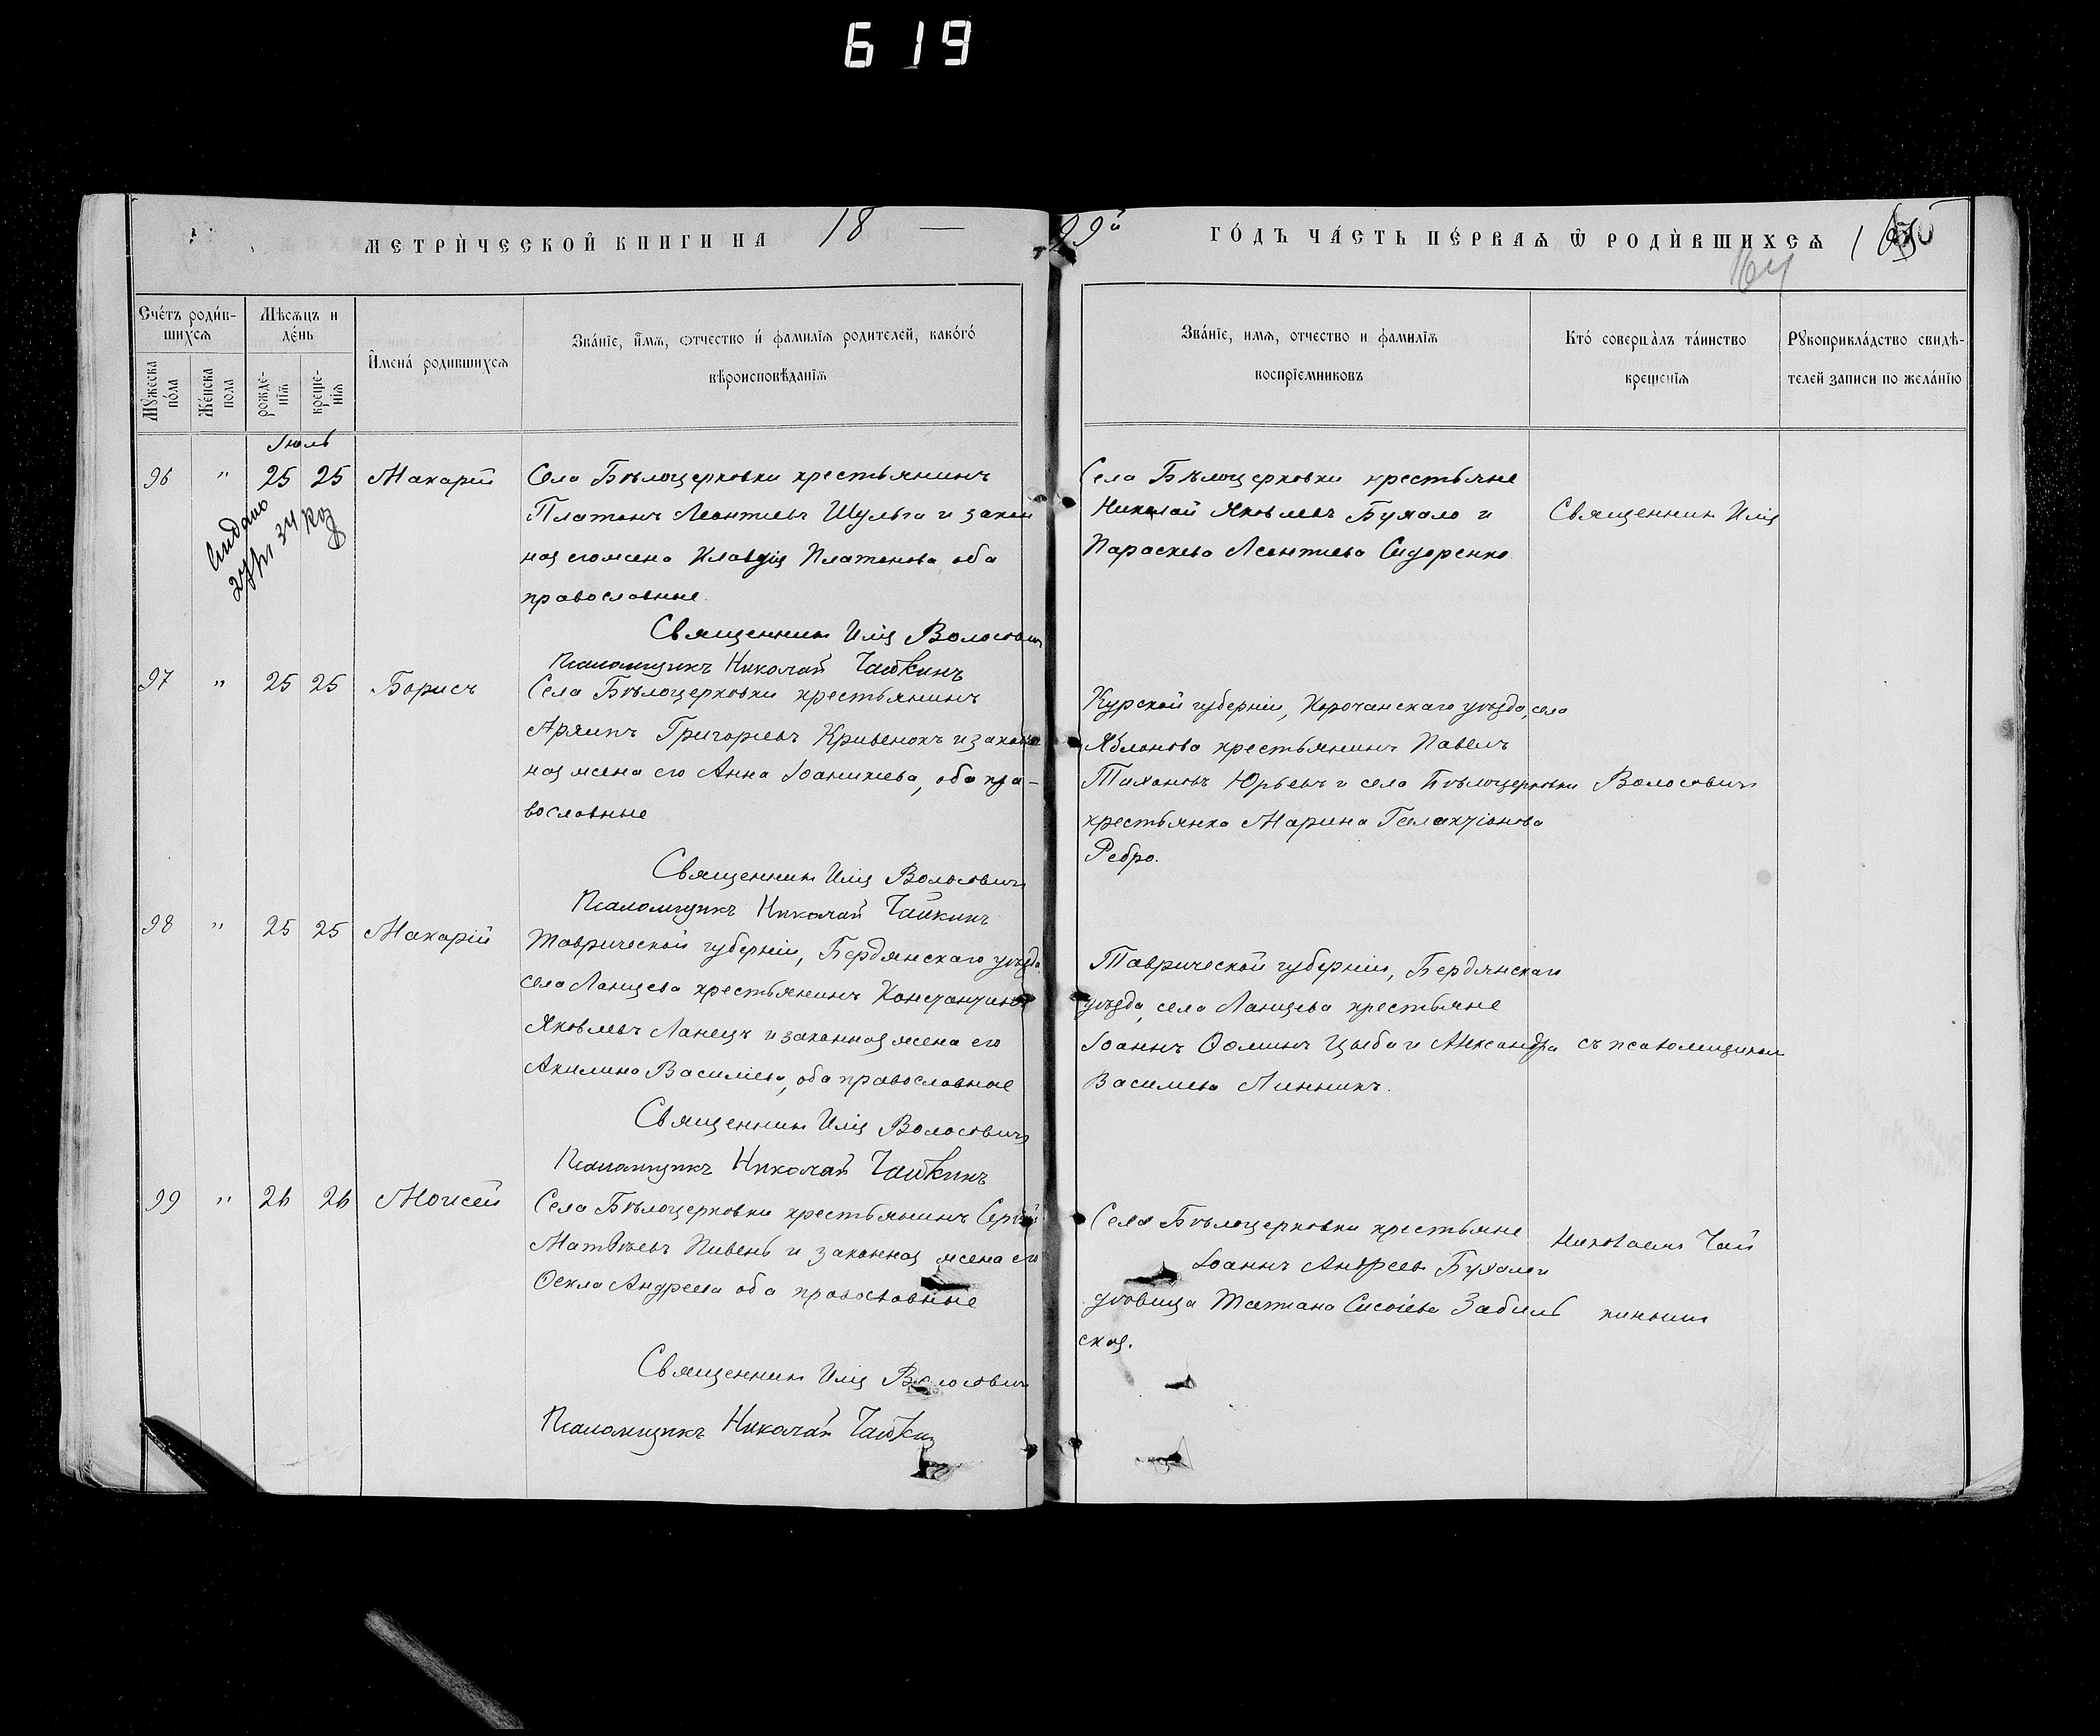 619
МЕТРИЧЕСКОЙ КНИГИ НА 18 — 99й ГОДЪ ЧАСТЬ ПЕРВАЯ Ѡ РОДИВШИХСЯ
164
Счетъ родив-
шихся
Мужеска пола
Женска пола
Мѣсяцъ и
день
рожде-
нія
креще-
нія
Имена родившихся
Званіе, имя, отчество и фамилія родителей, какого
вѣроисповѣданія
Званіе, имя, отчество и фамилія
воспріемниковъ
Кто совершалъ таинство
крещенія
Рукоприкладство свидѣ-
телей записи по желанію
Іюль
96 " 25 25 Макарій
Села Бѣлоцерковки крестьянинъ
Платонъ Леонтіевъ Шульга и закон
ная его жена Клавдія Платонова оба
православные.
Священникъ Илія Волосовичъ
Псаломщикъ Николай Чайкинъ
Села Бѣлоцерковки крестьяне
Николай Яковлевъ Бухало и
Параскева Леонтиева Сидоренко
Священник Илія
97 " 25 25 Борисъ
Села Бѣлоцерковки крестьянинъ
Григориевъ Кривенокъ и закон
ная жена его Анна Іоаникиева, оба пра-
вославные
Священникъ Илія Волосовичъ
Псаломщикъ Николай Чайкинъ
Курской губерніи, Корочанскаго уѣзда, села
Яблонова крестьянинъ Павелъ
Тихоновъ Юрьевъ и села Бѣлоцерковки
крестьянка Марина Галактіонова
Ребро.
Волосовичъ
98 " 25 25 Макарій
Таврической губерніи, Бердянскаго уѣзда
села Ланцева крестьянинъ Константинъ
Яковлевъ Ланецъ и законная жена его
Акилина Василіева, оба православные
Священникъ Илія Волосовичъ
Псаломщикъ Николай Чайкинъ
Таврической губерніи, Бердянскаго
уѣзда, села Ланцева крестьяне
Іоаннъ Ѳоминъ Цыба и Александра
Василиева Линникъ.
съ псаломщикомъ
99 " 26 26 Моисей
Села Бѣлоцерковки крестьянинъ Сергій
Матвѣевъ Пивень и законная жена его
Ѳекла Андреева оба православные
Священникъ Илія Волосовичъ
Псаломщикъ Николай Чайкинъ
Села Бѣлоцерковки крестьяне
Іоаннъ Андреевъ Бухало и
вдовица Татиана Сисоіева Забиль
ская.
Николаемъ Чай
кинымъ